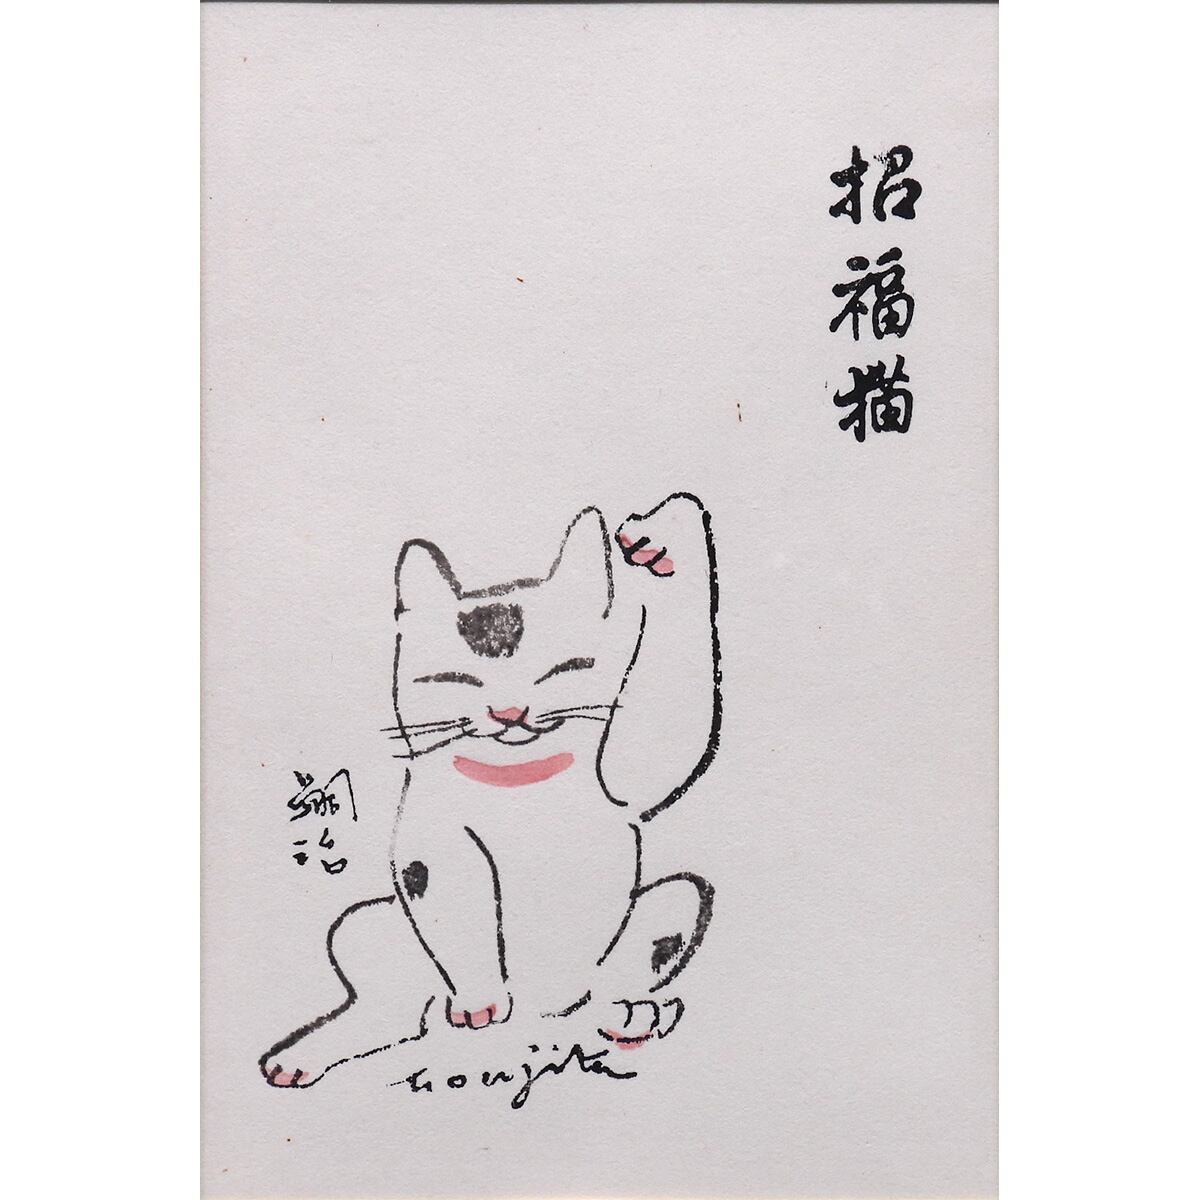 招福猫
嗣治
Foujita